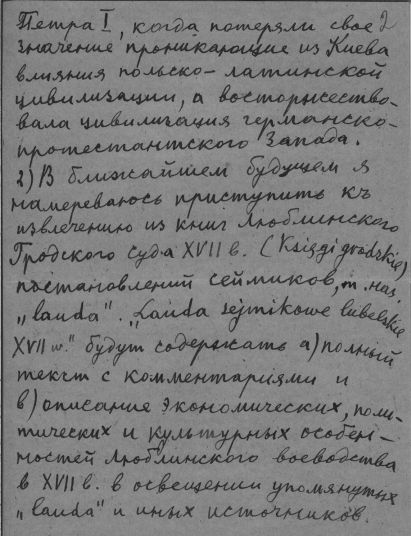 Петра I, когда потеряли свое 2
значение проникающие из Киева
влияния польско-латинской
цивилизации, а восторжество-
вала цивилизация германско-
протестантского Запада.
2) В ближайшем будущем я
намереваюсь приступить къ
извлечению из книг Люблинского
Гродского суда XVII в. (Księgi grodzkie)
постановлений сеймиков, т. наз.
„lauda". „Lauda sejmikowe lubelskie
XVII w." будут содержать а) полный
текст с комментариями и
в) описание экономических, поли-
тических и культурных особен-
ностей Люблинского воеводства
в XVII в. в освещении упомянутых
„lauda" и иных источников.